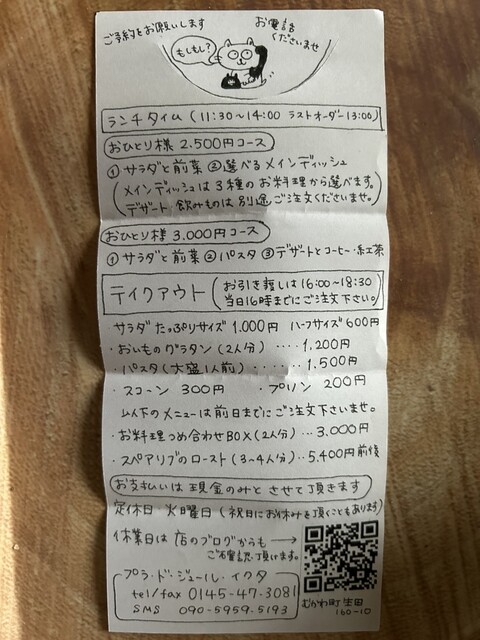 ご予約をお願いします
お電話
くださいませ
もしもし?
ランチタイム(11:30~14:00 ラストオーダー13:00)
おひとり様 2.500円コース
①サラダと前菜 ②選べるメインディッシュ
(メインディッシュは3種のお料理から選べます。
デザート 飲みものは別途ご注文くださいませ。)
おひとり様 3.000円コース
①サラダと前菜 ②パスタ ③デザートとコーヒー・紅茶
テイクアウト(お引き渡しは16:00~18:30
当日16時までにご注文下さい。)
サラダ たっぷりサイズ 1.000円 ハーフサイズ 600円
・おいものグラタン(2人分)‥‥1.200円
・パスタ(大盛1人前)‥‥‥1.500円
・スコーン 300円 ・プリン 200円
以下のメニューは前日までにご注文下さいませ。
・お料理つめ合わせBOX(2人分)…3.000円
・スペアリブのロースト(3~4人分)‥5.400円前後
お支払いは現金のみとさせて頂きます
定休日 火曜日(祝日にお休みを頂くこともあります)
休業日は店のブログからも
ご確認頂けます。
プラ・ド・ジュール・イクタ
tel/fax 0145-47-3081
SMS 090-5959-5193
むかわ町生田
160-10